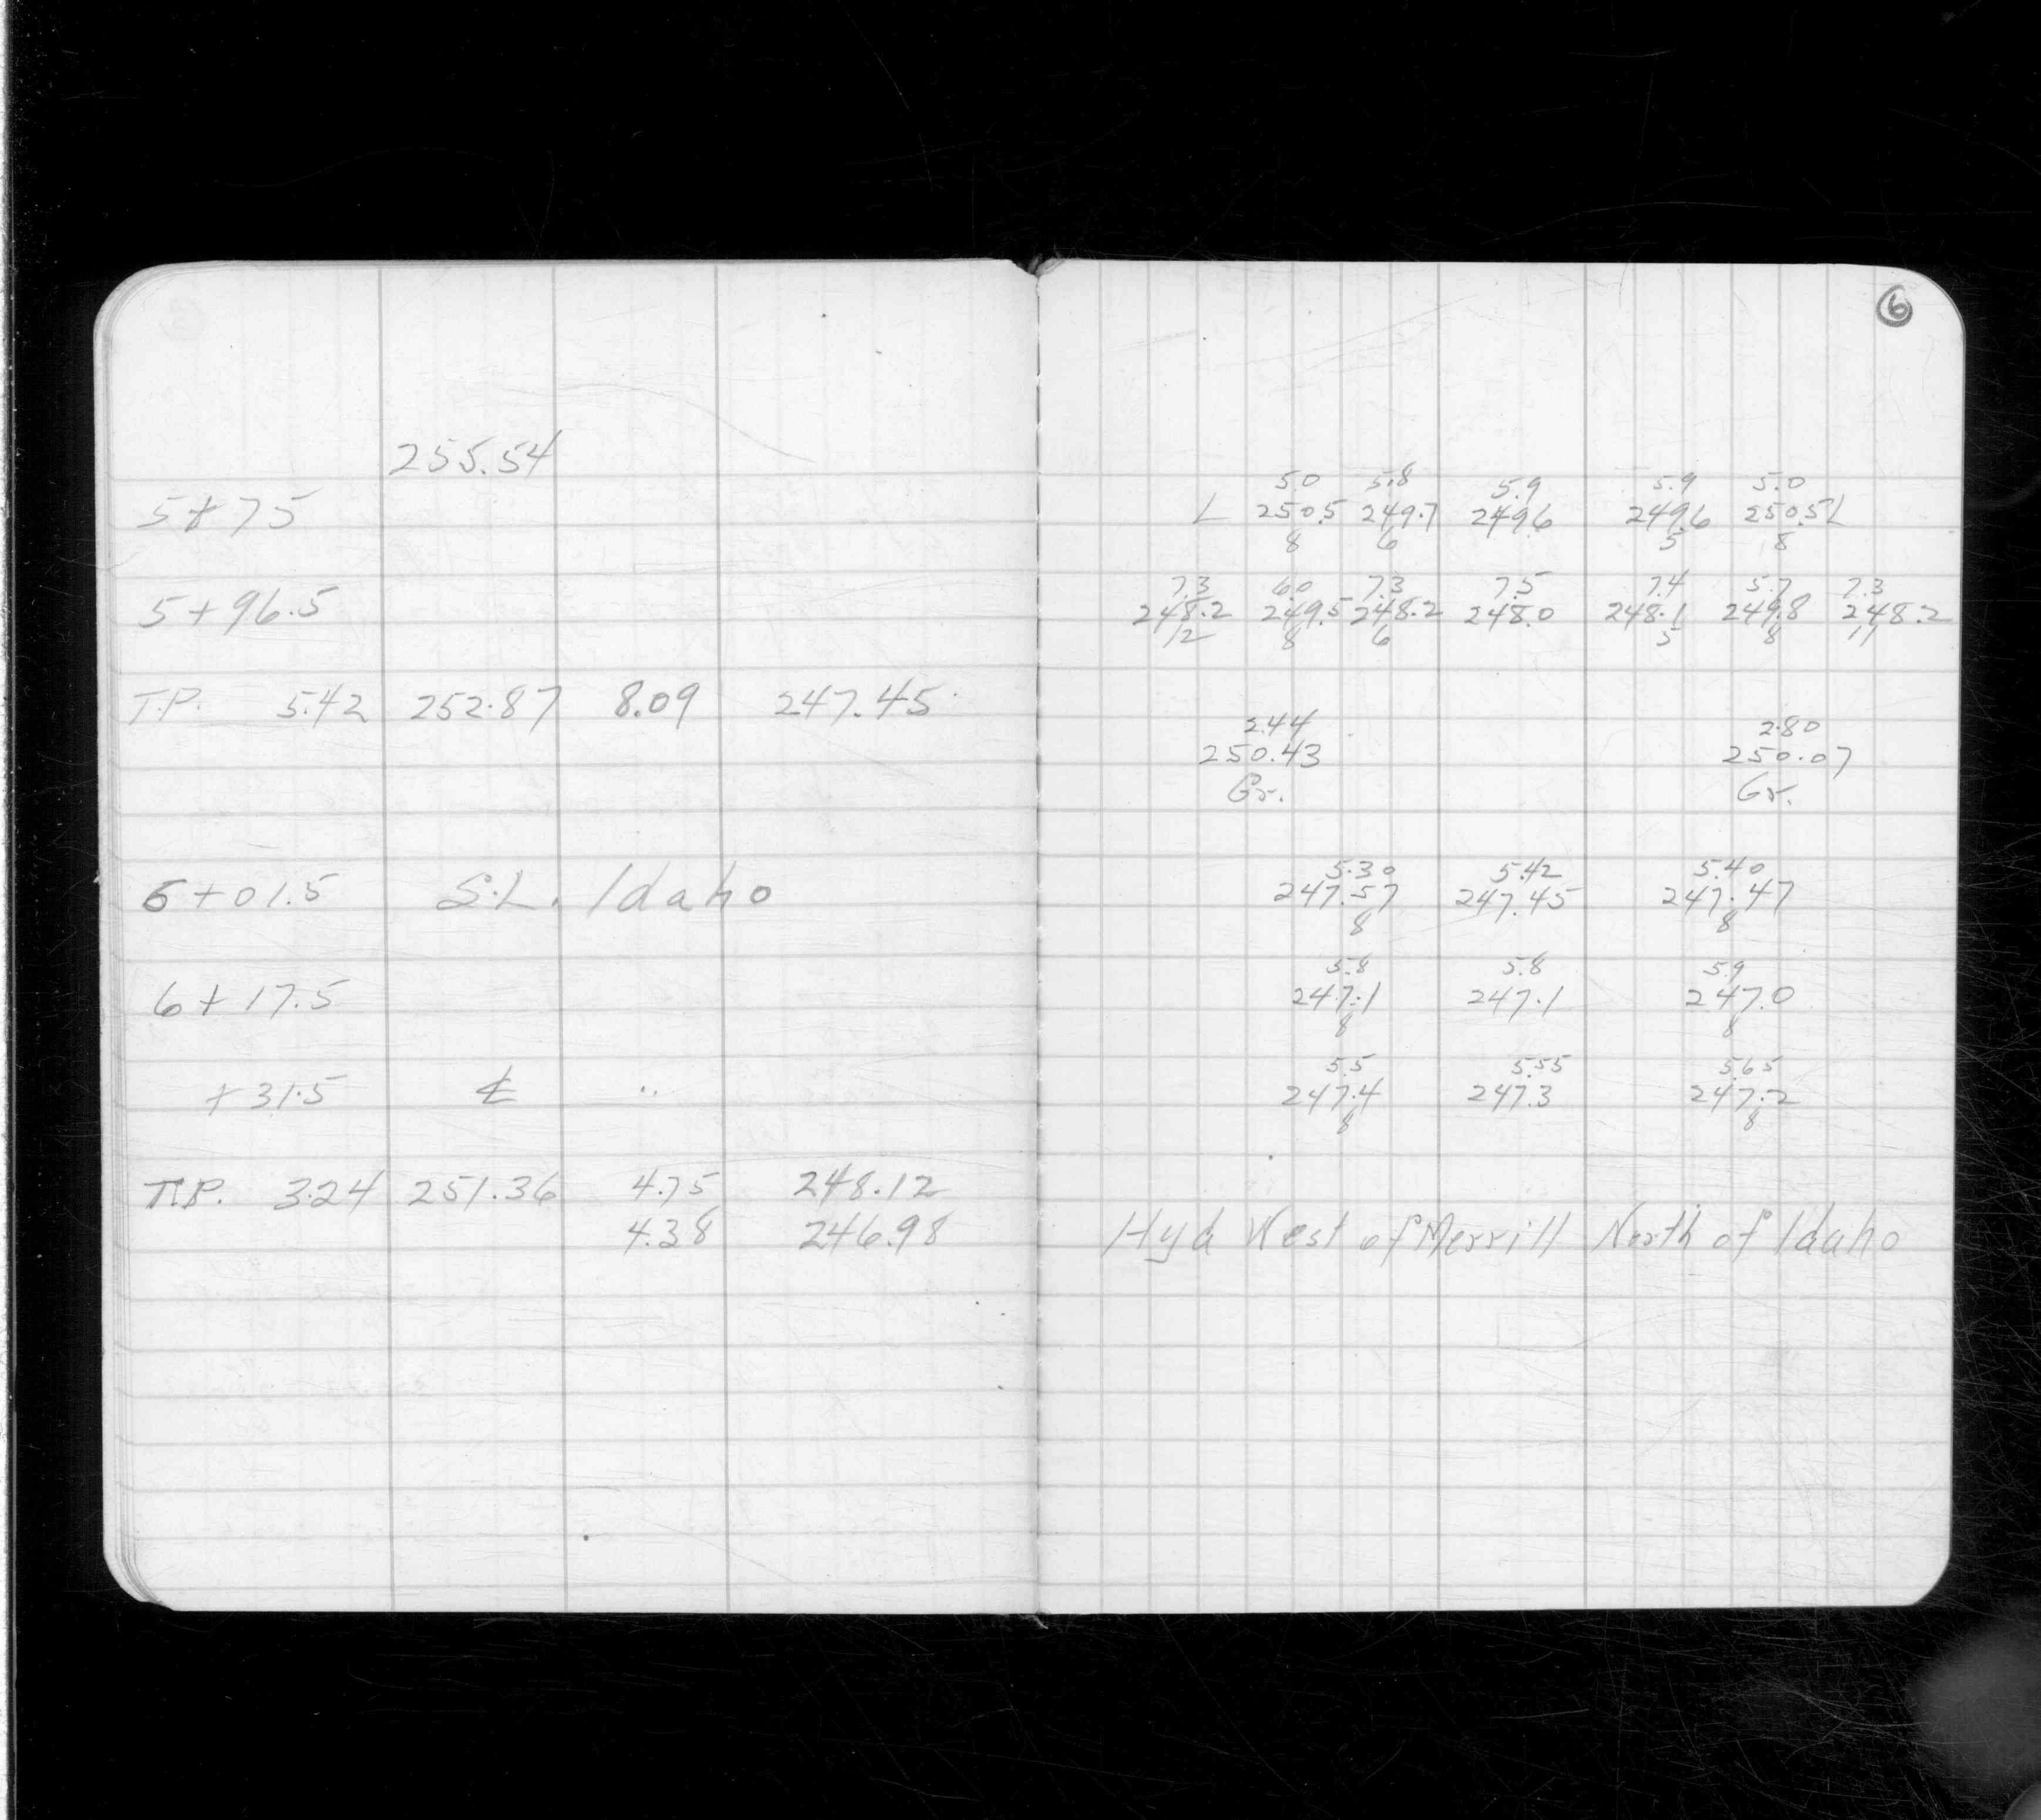 6
255.54
5.0 5.8 5.9 5.9 5.0
5+75 L 250.5 249.7 249.6 249.6 250.5 L
8 6 5 8
7.3 6.0 7.3 7.5 7.4 5.7 7.3
5+96.5 248.2 249.5 248.2 248.0 248.1 249.8 248.2
12 8 6 5 8 11
T.P. 5.42 252.87 8.09 247.45
2.44 2.80
250.43 250.07
Gr. Gr.
5.30 5.42 5.40
6+01.5 S.L. Idaho 247.57 247.45 247.47
8 8
5.8 5.8 5.9
6+17.5 247.1 247.1 247.0
8 8
5.5 5.55 5.65
+31.5 ℄ " 247.4 247.3 247.2
8 8
T.P. 3.24 251.36 4.75 248.12
4.38 246.98 Hyd West of Merrill North of Idaho